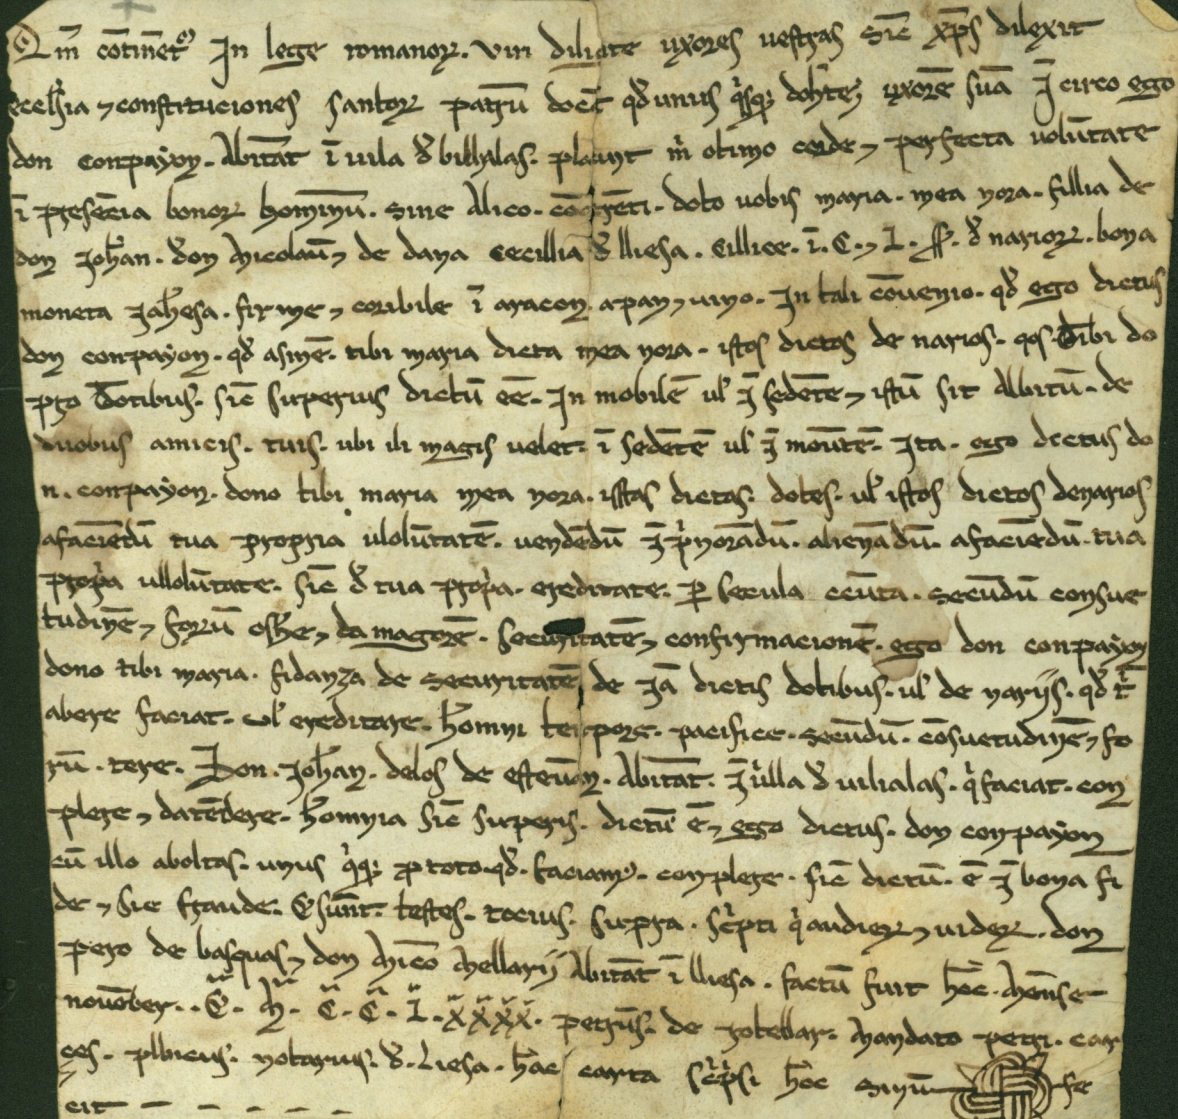 Qm̄ cōtinet᷑ In lege romanoꝝ. viri diligite uxores uestras sic̄ xp̄s dilexit
ecclesia ⁊ constituciones santoꝝ patrū docē qđ unus q̓sq; uxorē suā Ī circo ego
don conpayon. Abitāt ī uila đ billyalas. placuit m̓ obtimo corde ⁊ perfecta volūtate
ī presēcia bonoꝝ hominū. sine Alico. doto uobis maria. mea nora. fillia de
don Joh̄an. đon Nicolau ⁊ de dana cecillia đ lliesa. ī. C. ⁊ L. đ narioꝝ. bona
moneta Jah̄esa. firme ⁊ coribile ī aragon. apan ⁊ uino. In tali cōuenio. qđ ego dictus
don conpayon. qđ asinē. tibi maria dicta mea nora. istos dictos de narios. qos. tibi do
pro Dotibus. sic̄ superius dictū eē. In mobilē ul̓ ī sedētē ⁊ istū sit Albitū. de
duobus amicis. tuis. ubi ili magis uelet. ī sedētē ul̓ ī mouētē. Ita. ego dictus do
n. conpayon. dono tibi maria mea nora. istas dictas. dotes. ul̓ istos dictos denarios
afaciēdū tua propria uolūtatē. uendēdū īp̓norādū. alienādū. afaciēdū. tua
prop̓a ullolūtate. sic̄ đ tua prop̓a. ereditate. ꝑ secula cc̄uta. secūdū consue
tudinē ⁊ forū osh̄e ⁊ da magorē. securitatē ⁊ confirmacionē. ego don conpayon
dono tibi maria. fidanza de securitatē de Jā dictis dotibus. ul̓ de nariis. qđ t̄
abere faciat. ul̓ ereditare. h̓omni tenpore. pacifice. secūdū. cōsuetudinē ⁊ fo
rū. tere. Don. Joh̄an. delos de esteuan. Abitāt. ī uilla đ uilialas. q̓ faciat. con
plere ⁊ datēdere. h̓omnia sic̄ superis. dictū ē ⁊ ego dictus. don conpayon
cū illo aboltas. unus q̓sq; ꝓ toto. qđ. faciam᷒. conplere. sic̄ dictū. ē ī bona fi
de ⁊ sie fraude. Esūnt. testes. tocius. supra. sc̓pti q̓ audieꝝ ⁊ uideꝝ. don
pero de basquas ⁊ don Mic̄o Mellarij Abitāt ī lliesa. factū fuit h̄oc. Mēnse
nouēber.. E. M. C. C. L. XXXX. petrus. de Mandato petri. car
ces. plbicus. notarius. đ. Liesa. h̄ac carta sc̓psi h̄oc signū fe
cit